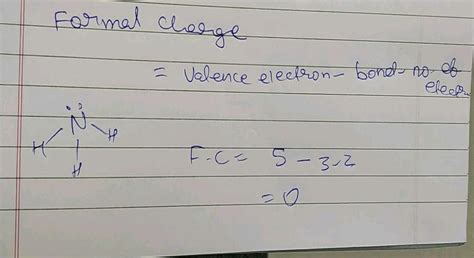 Formal charge
= Valence electron - bond - no. of
electro
N
H H
H
F.C = 5 - 3-2
= 0